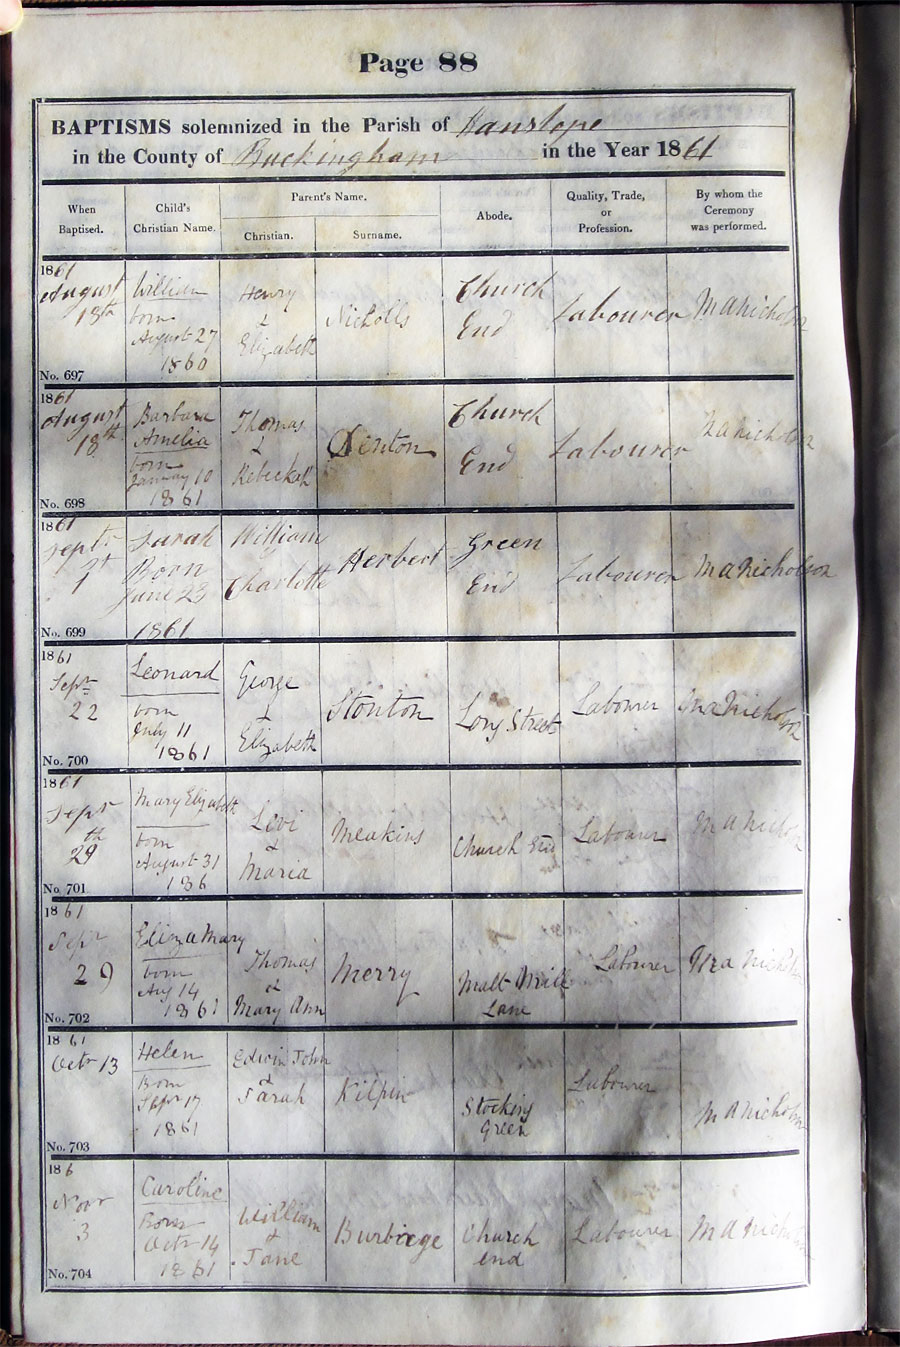 Page 88
BAPTISMS solemnized in the Parish of Hanslope
in the County of Buckingham in the Year 1861
When Baptised.
Child's Christian Name.
Parent's Name.
Christian.
Surname.
Abode.
Quality, Trade, or Profession.
By whom the Ceremony was performed.
1861
August 18th
No. 697
William
born
August 27
1860
Henry
&
Elizabeth
Nicholls
Church
End
Labourer
M A Nicholson
1861
August 18th
No. 698
Barbara
Amelia
born
January 10
1861
Thomas
&
Rebeckah
Denton
Church
End
Labourer
M A Nicholson
1861
Septr
1st
No. 699
Sarah
Born
June 23
1861
William
&
Charlotte
Herbert
Green
End
Labourer
M A Nicholson
1861
Septr
22
No. 700
Leonard
born
July 11
1861
George
&
Elizabeth
Stonton
Long Street
Labourer
M A Nicholson
1861
Septr
29th
No. 701
Mary Elizabeth
born
August 31
186
Levi
&
Maria
Meakins
Church End
Labourer
M A Nicholson
1861
Septr
29
No. 702
Eliza Mary
born
Aug 14
1861
Thomas
&
Mary Ann
Merry
Malt Mill
Lane
Labourer
M A Nicholson
1861
Octr 13
No. 703
Helen
Born
Septr 17
1861
Edwin John
&
Sarah
Kilpin
Stocking
Green
Labourer
M A Nicholson
186
Novr
3
No. 704
Caroline
Born
Octr 14
1861
William
&
Jane
Burbidge
Church
end
Labourer
M A Nicholson